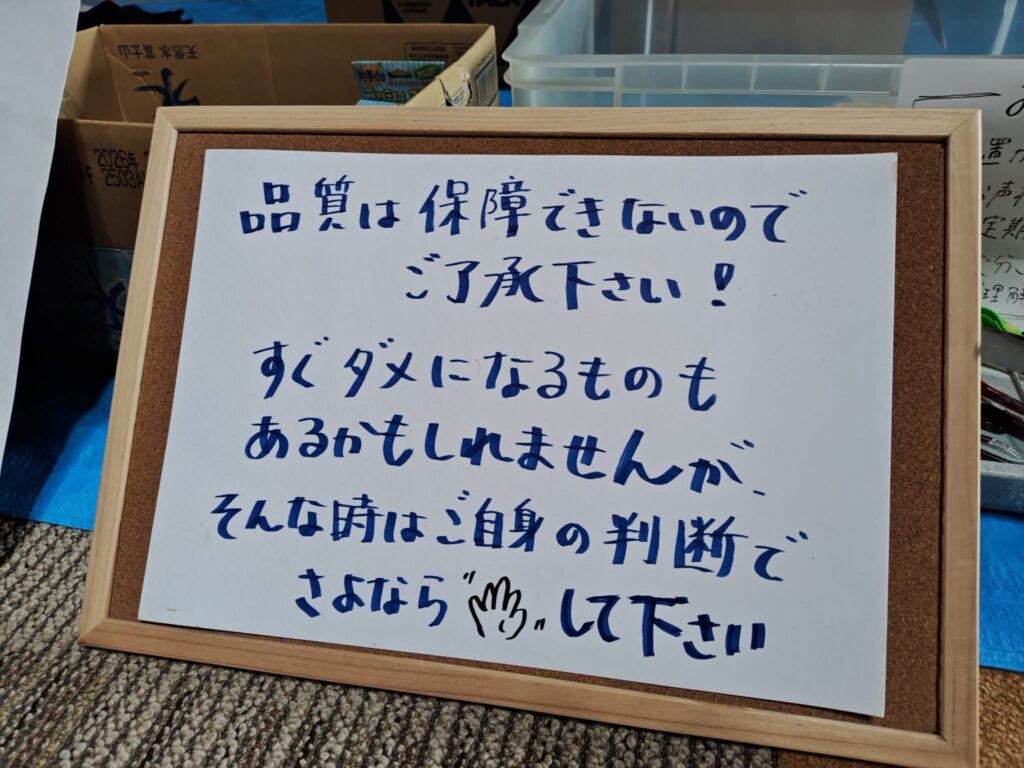 品質は保障できないので
ご了承下さい!
すぐダメになるものも
あるかもしれませんが、
そんな時はご自身の判断で
さよなら して下さい
天然水 富士山
水
2026年
2503A
置
声
定期
理解